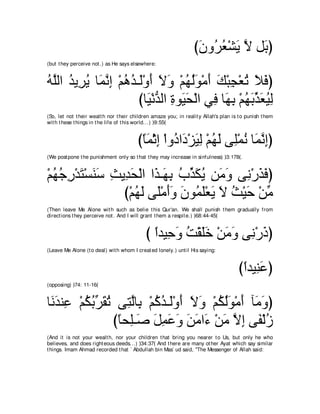 (بَل لاَّ يَشْعُرُونَ)
(but they perceive not.) as He says elsewhere:
(فَلاَ تُعْجِبْكَ أَمْوَلُهُمْ وَلاَ أَوْلَـدُهُمْ إِنَّمَا يُرِيدُ اللَّهُ
لِيُعَذِّبَهُمْ بِهَا فِي الْحَيَوةِ الدُّنْيَا)
(So, let not their wealth nor their children amaze you; in reality Allah's plan is to punish them
with these things in the life of this world...) )9:55(
(إِنَّمَا نُمْلِى لَهُمْ لِيَزْدَادُواْ إِثْمَاً)
(We postpone the punishment only so that they may increase in sinfulness) )3:178(,
(فَذَرْنِى وَمَن يُكَذِّبُ بِهَـذَا الْحَدِيثِ سَنَسْتَدْرِجُهُمْ
مِّنْ حَيْثُ لاَ يَعْلَمُونَ وَأُمْلِى لَهُمْ)
(Then leave Me Alone with such as belie this Qur'an. We shall punish them gradually from
directions they perceive not. And I will grant them a respite.) )68:44-45(
(ذَرْنِى وَمَنْ خَلَقْتُ وَحِيداً )
(Leave Me Alone (to deal) with whom I created lonely.) until His saying:
(عَنِيداً)
(opposing) )74: 11-16(
(وَمَآ أَمْوَلُكُمْ وَلاَ أَوْلَـدُكُمْ بِالَّتِى تُقَرِّبُكُمْ عِندَنَا
زُلْفَى إِلاَّ مَنْ ءَامَنَ وَعَمِلَ صَـلِحاً)
(And it is not your wealth, nor your children that bring you nearer to Us, but only he who
believes, and does righteous deeds...) )34:37( And there are many other Ayat which say similar
things. Imam Ahmad recorded that `Abdullah bin Mas`ud said, "The Messenger of Allah said: